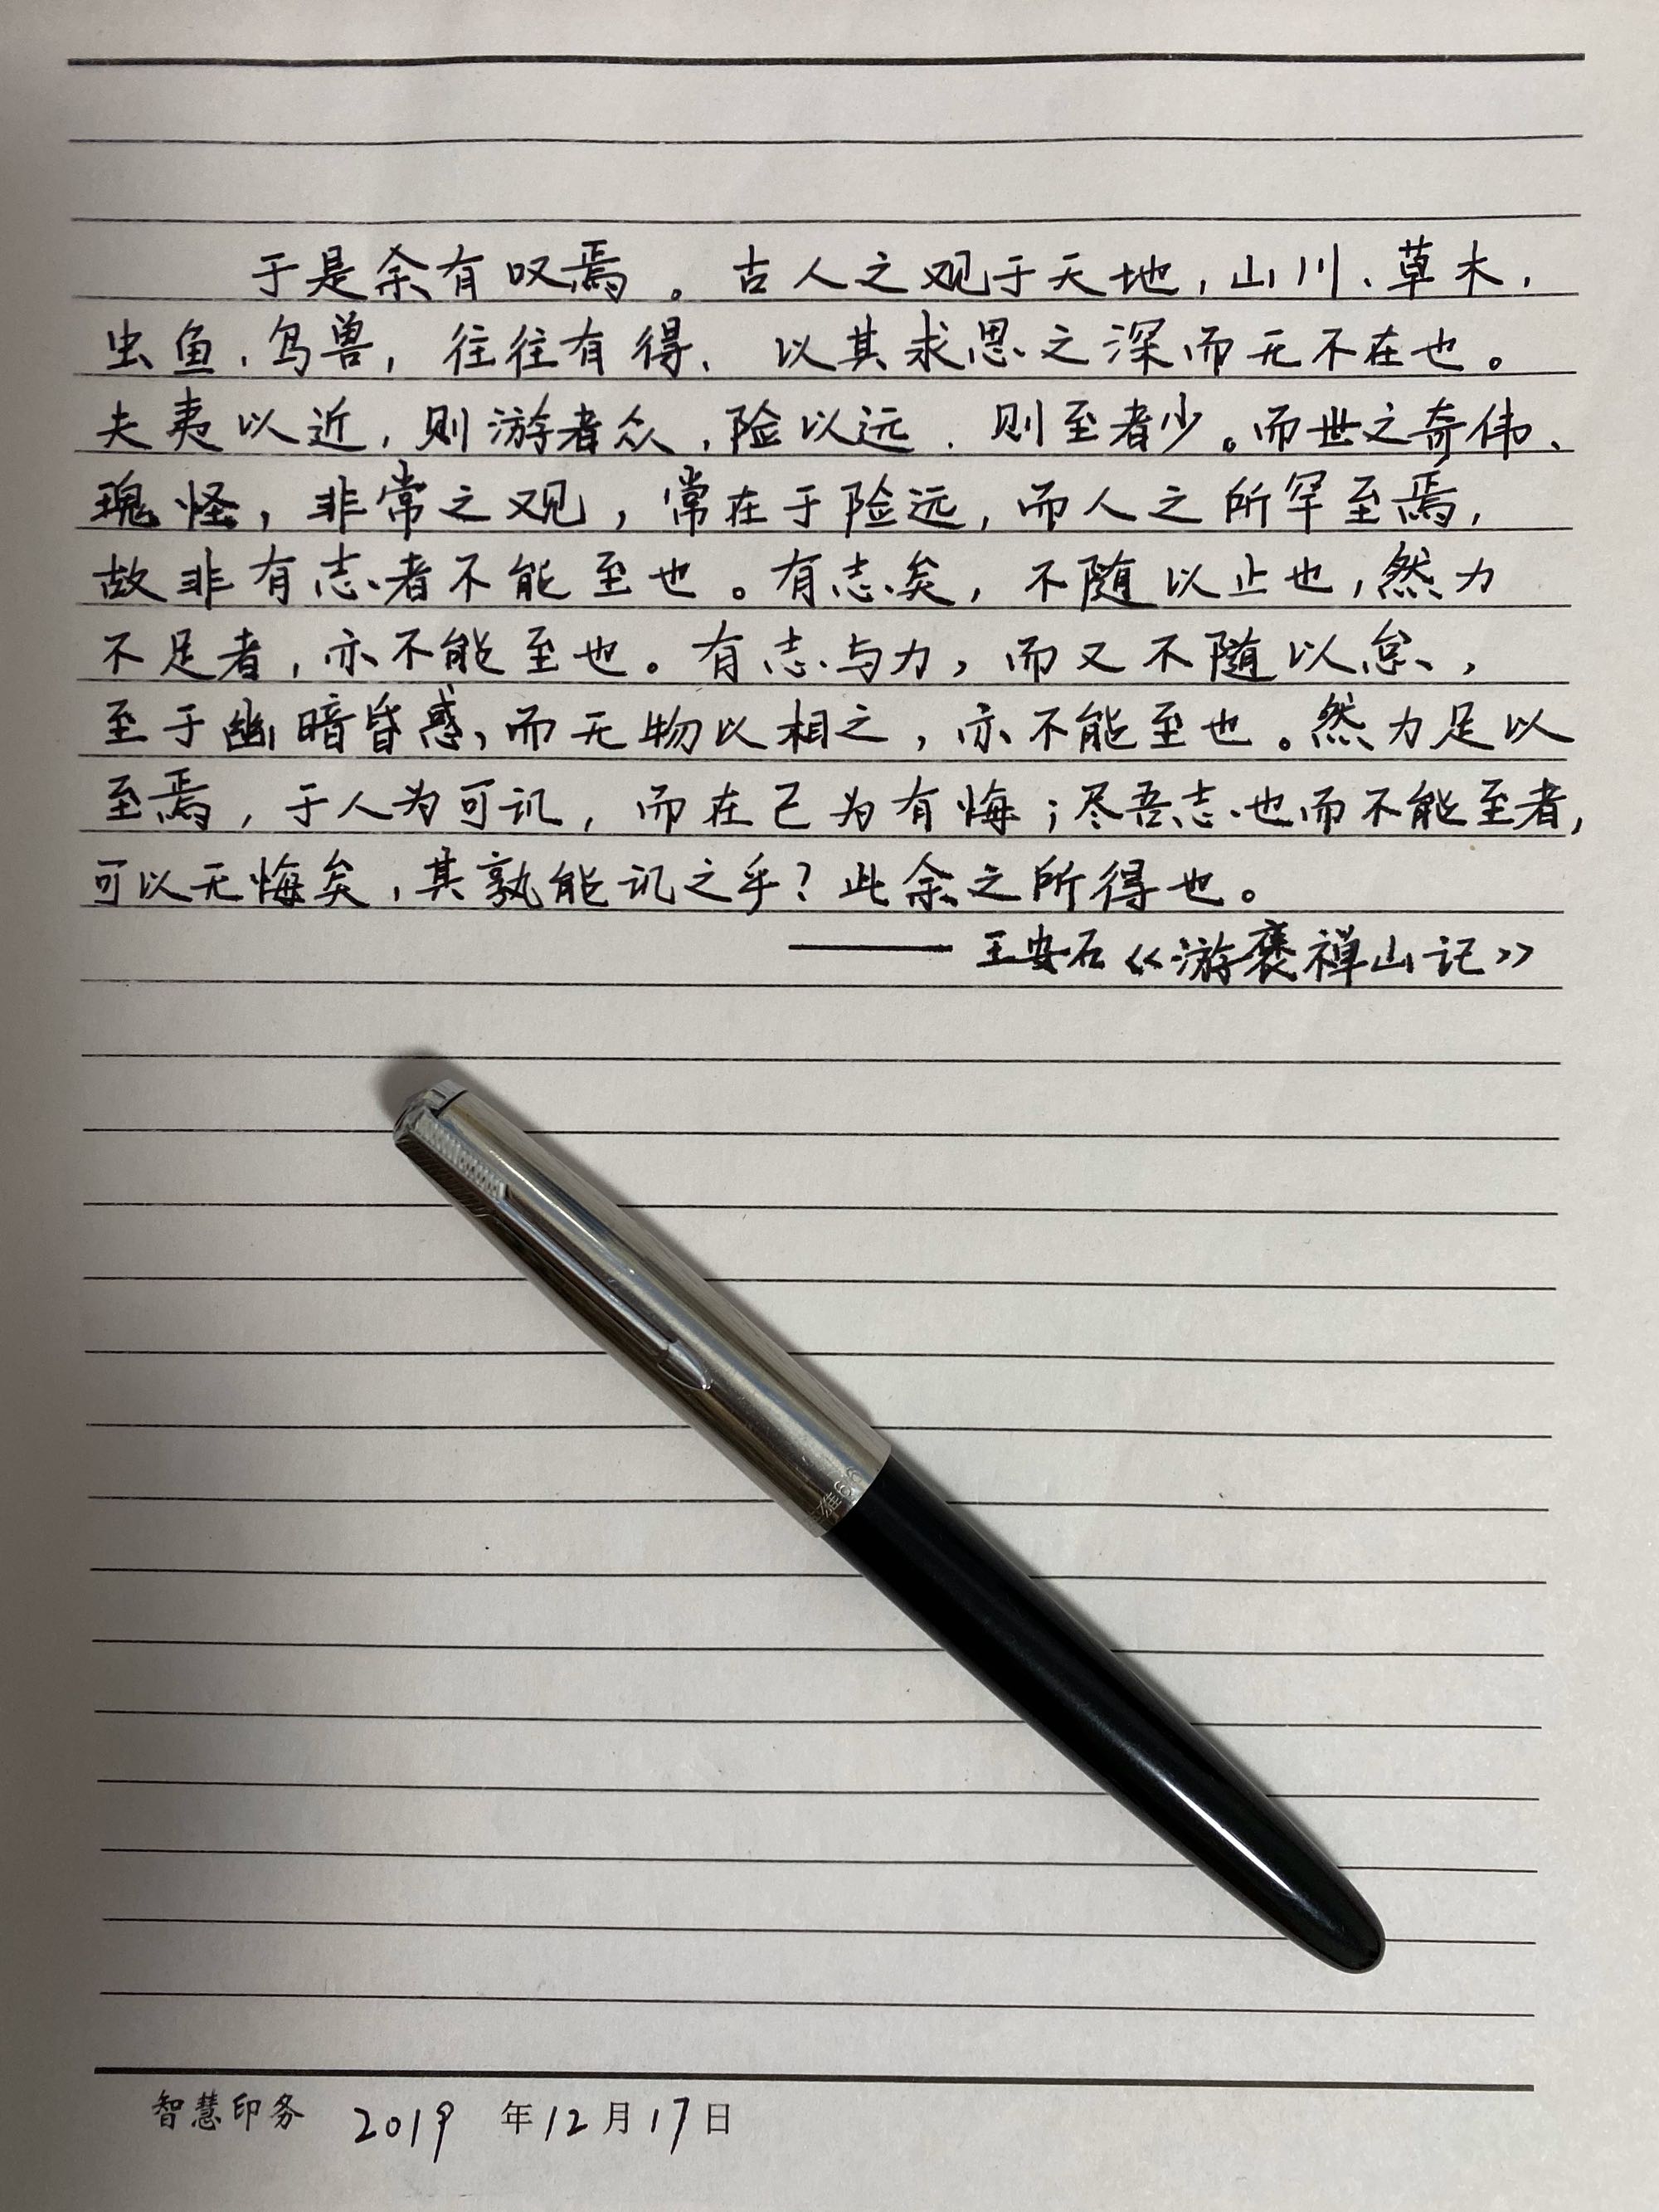 于是余有叹焉。古人之观于天地,山川、草木,
虫鱼、鸟兽,往往有得、以其求思之深而无不在也。
夫夷以近,则游者众,险以远、则至者少。而世之奇伟、
瑰怪,非常之观,常在于险远,而人之所罕至焉,
故非有志者不能至也。有志矣,不随以止也,然力
不足者,亦不能至也。有志与力,而又不随以怠,
至于幽暗昏惑,而无物以相之,亦不能至也。然力足以
至焉,于人为可讥,而在己为有悔;尽吾志也而不能至者,
可以无悔矣,其孰能讥之乎?此余之所得也。
——王安石《游褒禅山记》
雄66
智慧印务 2019 年12月17日